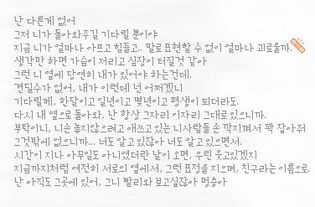 난 다른게 없어
그저 니가 돌아와주길 기다릴 뿐이야
지금 니가 얼마나 아프고 힘들고.. 말로 표현할 수 없이 얼마나 괴로울까.
생각만 하면 가슴이 저리고 심장이 터질것 같아
그런 니 옆에 당연히 내가 있어야 하는건데.
견딜수가 없어, 내가 이런데 넌 어쩌겠니
기다릴께, 한달이고 일년이고 몇년이고 평생이 되더라도
다시 내 옆으로 돌아와, 난 항상 그자리 이자리 그대로 있으니까.
부탁이니, 니손 놓지않으려고 애쓰고 있는 니사람들 손 딱지며서 꽉 잡아줘
그것밖에 없으니까... 너도 알고 있잖아 너도 알고 있으면서.
시간이 지나 아무일도 아니였더란 날이 오면, 우린 웃고있겠지
지금까지처럼 여전히 서로의 옆에서, 그런 표정을 지으며, 친구라는 이름으로.
난 아직도 그곳에 있어, 그니 빨리와 보고싶잖아 멍충아